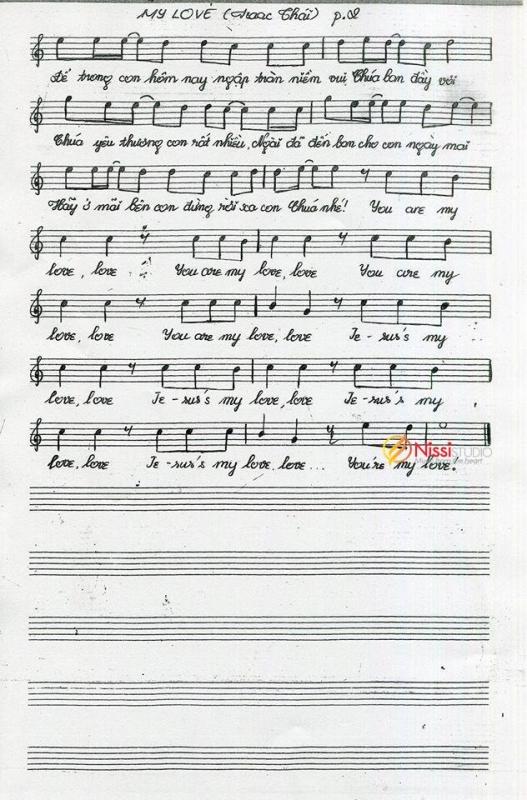 MY LOVE (Isaac Thái) p.2
Để trong con hôm nay ngập tràn niềm vui Chúa ban đầy vơi
Chúa yêu thương con rất nhiều, Ngài đã đến ban cho con ngày mai
Hãy ở mãi bên con đừng rời xa con Chúa nhé! You are my
love, love You are my love, love You are my
love, love You are my love, love Je-sus's my
love, love Je-sus's my love, love Je-sus's my
love, love Je-sus's my love, love... You're my love!
Nissi STUDIO